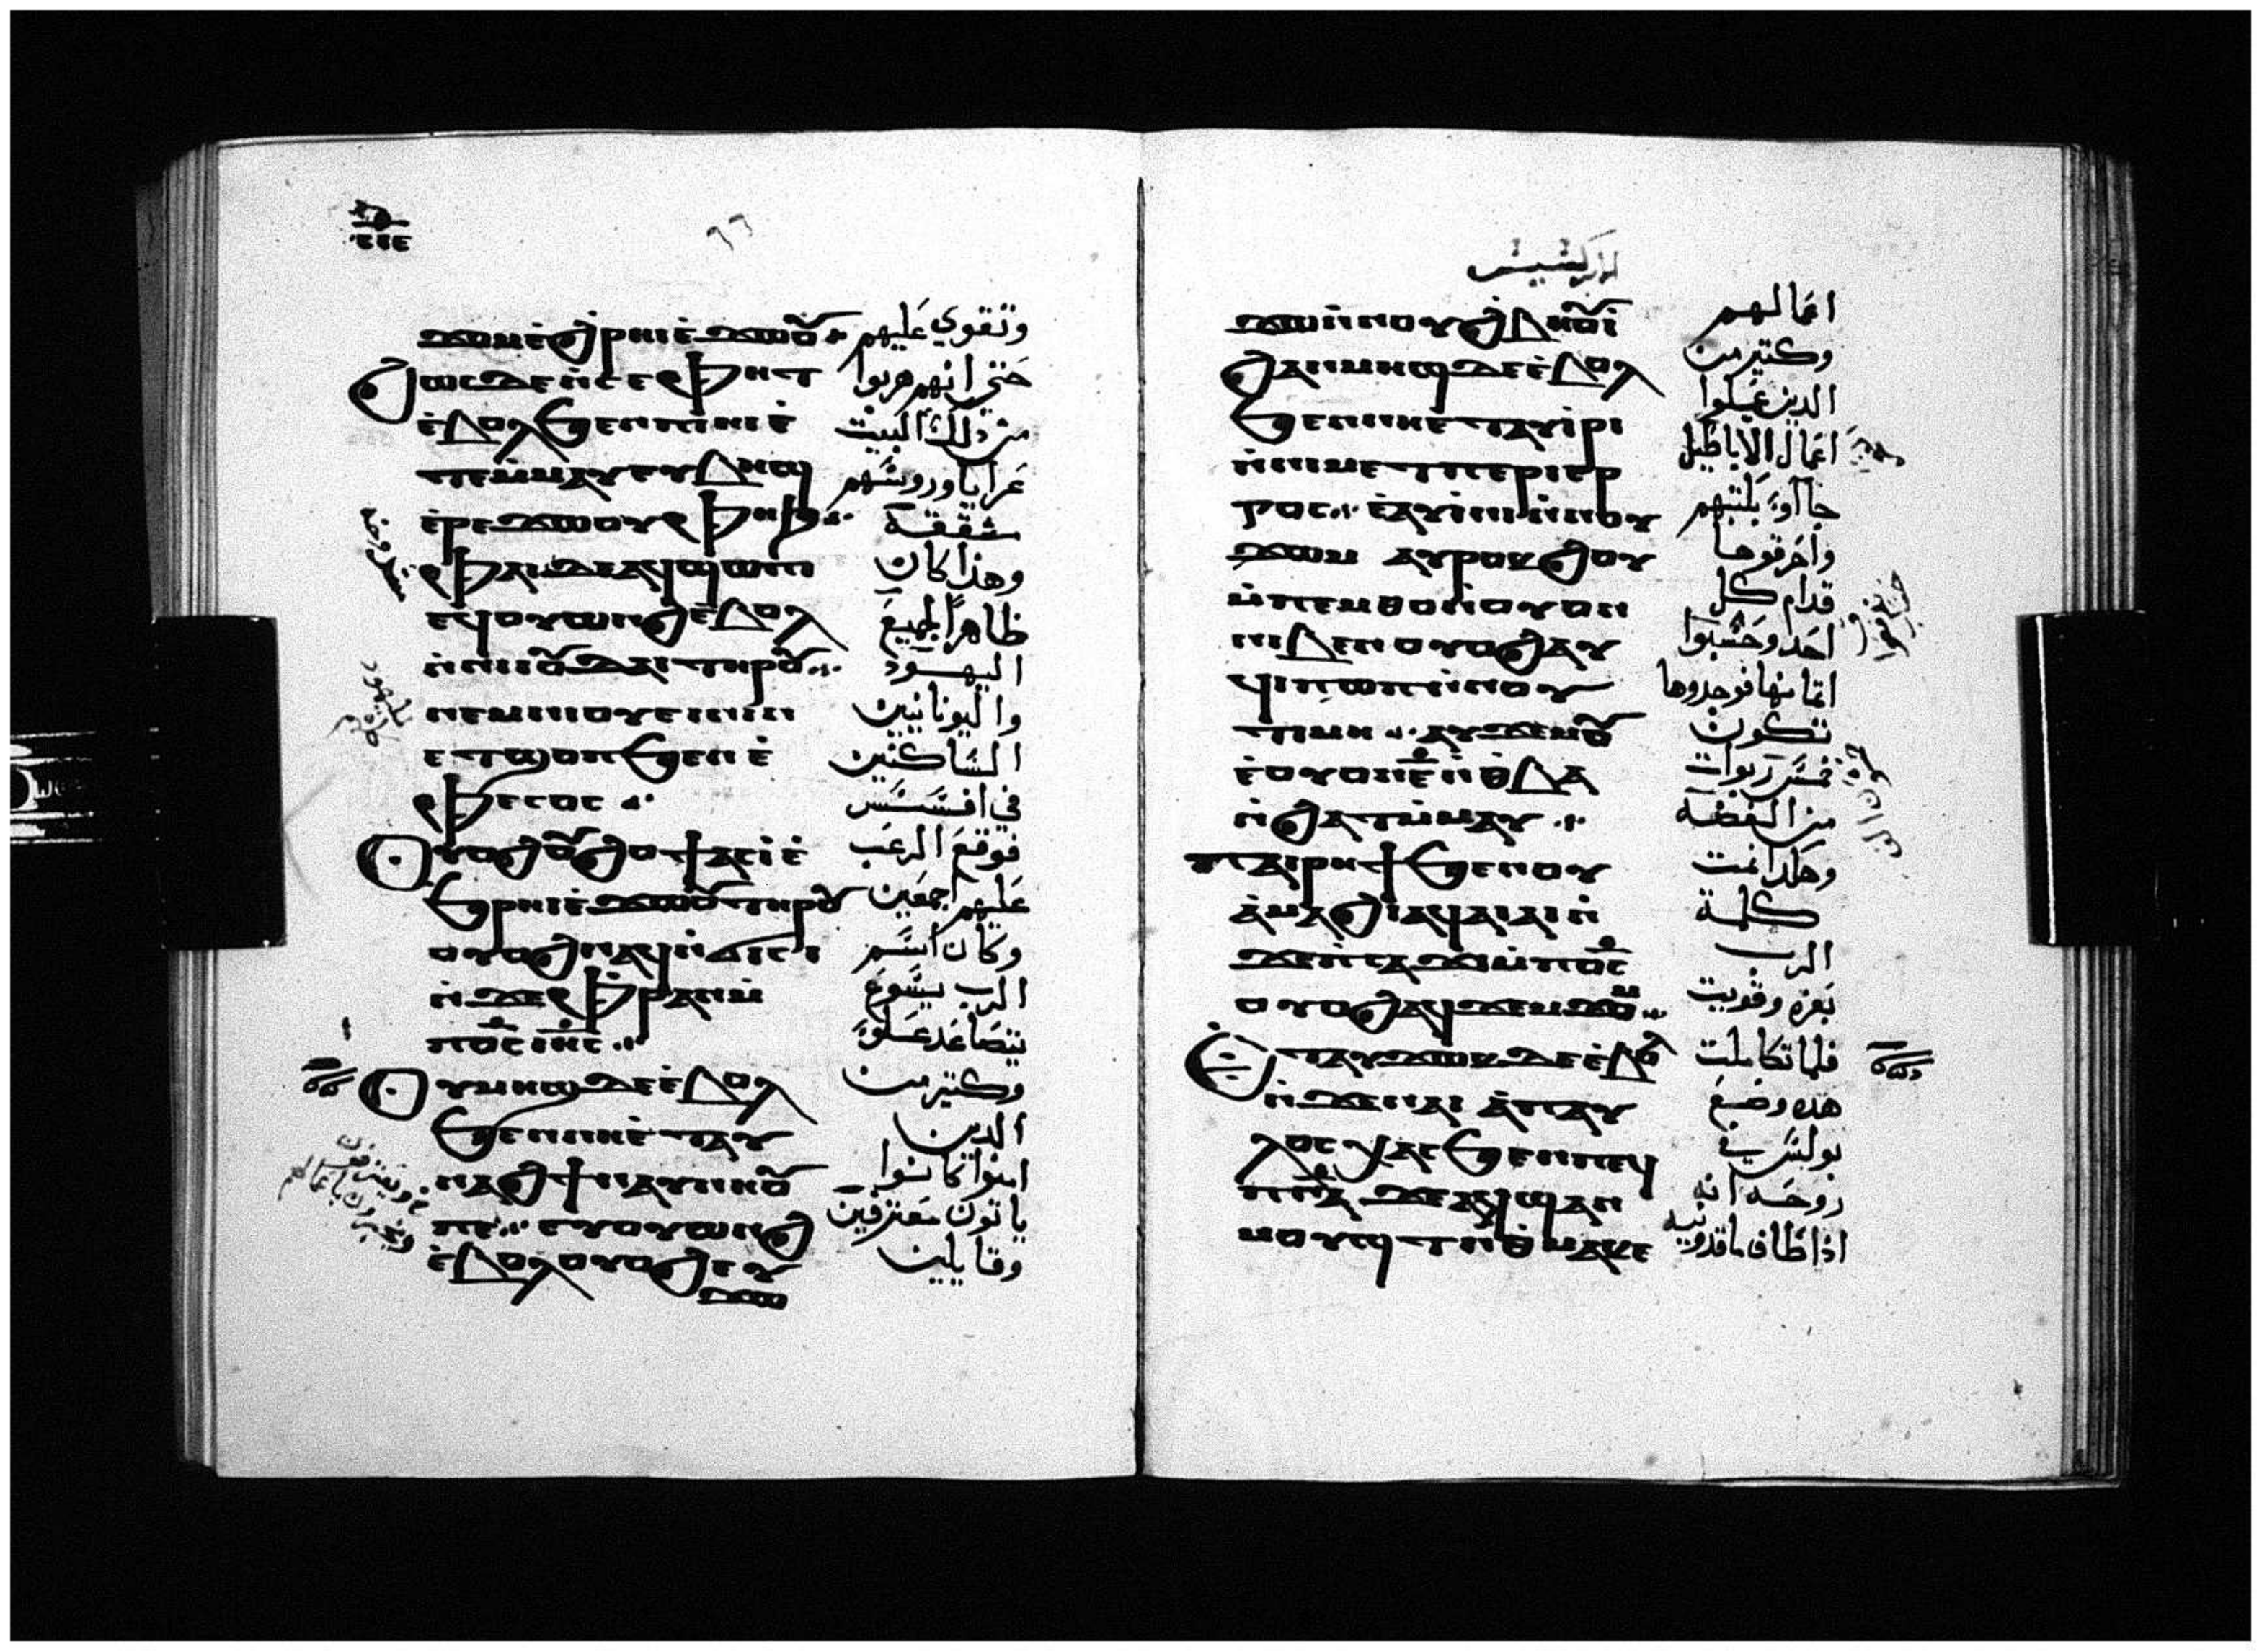 ϫⲟⲙ ⲉ̀ϩⲣⲏⲓ ⲉ̀ϫⲱⲟⲩ
ϩⲱⲥⲇⲉ ⲛ̀ⲥⲉⲫⲏⲧ
ⲉ̀ⲃⲟⲗ ϧⲉⲛ ⲡⲓⲏⲓ ⲉ̀
ⲧⲉⲙ̀ⲙⲁⲩ ⲉⲩⲃⲏϣ
ⲉ̀ⲣⲉ ϫⲱⲟⲩ ⲫⲏϧ
ⲫⲁⲓ ⲇⲉ ⲁϥϣⲱⲡⲓ
ⲉϥⲟⲩⲱⲛϩ ⲉ̀ⲃⲟⲗ
ⲛ̀ⲛⲓⲓⲟⲩⲇⲁⲓ ⲧⲏⲣⲟⲩ
ⲛⲉⲙ ⲛⲓⲟⲩⲉⲓⲛⲓⲛ
ⲉⲧϣⲟⲡ ϧⲉⲛ ⲉ̀
ⲫⲉⲥⲟⲥ
ⲟⲩⲟϩ ⲟⲩϩⲟϯ ⲁⲥⲓ̀ ⲉ̀
ϧⲣⲏⲓ ⲉ̀ϫⲱⲟⲩ ⲧⲏⲣⲟⲩ
ⲟⲩⲟϩ ⲛⲁϥⲛ̀ϭⲓⲥⲓ
ⲛ̀ϫⲉ ⲫⲣⲁⲛ ⲙ̀
ⲡⲟ̅ⲥ̅ ⲓⲏ̅ⲥ̅
ⲟⲩⲙⲏϣ ⲇⲉ ⲉ̀ⲃⲟⲗ
ϧⲉⲛ ⲛⲏⲉ̀ⲧⲁⲩ
ⲛⲁϩϯ ⲛⲁⲩⲛⲏⲟⲩ
ⲡⲉ ⲉⲩⲟⲩⲱⲛϩ
ⲉ̀ⲃⲟⲗ ⲟⲩⲟϩ ⲉⲩ
ϫⲱ
وتقوي عليهم
حتى انهم هربوا
من ذلك البيت
عرايا وروسهم
مشققة
وهذا كان
ظاهراً لجميع
اليهود
واليونانيين
السَّاكنين
في افسس
فوقع الرعب
عليهم اجمعين
وكان اسم
الرب يسوع
يتصاعد علوّ
وكتير من
الدين
امنوا كانوا
ياتون معترفين
وقايلين
ϫⲱ ⲛ̀ⲛⲟⲩϩⲃⲏⲟⲩⲓ̀
ϩⲁⲛⲙⲏϣ ⲇⲉ ⲉ̀ⲃⲟⲗ
ϧⲉⲛ ⲛⲏⲉ̀ⲧⲁⲩⲓ̀ⲣⲓ
ⲛ̀ⲛⲓⲙⲉⲧⲡⲉⲣⲓⲉⲣ
ⲅⲟⲥ ⲉ̀ⲁⲩⲓ̀ⲛⲓ ⲛ̀ⲛⲟⲩ
ϫⲱⲙ ⲁⲩⲣⲟⲕϩⲟⲩ
ⲙ̀ⲡⲉⲙⲑⲟ ⲛ̀ⲟⲩⲟⲛ
ⲛⲓⲃⲉⲛ ⲟⲩⲟϩ ⲁⲩ
ϥⲓⲡⲱⲡ ⲛ̀ⲛⲟⲩ
ⲧⲓⲙⲏ ⲁⲩϫⲉⲙⲟⲩ
ⲉ̀ⲟⲩⲟⲛ ⲉ̅ ⲛ̀ⲑⲃⲁ
ⲛ̀ϩⲁⲧ ⲙ̀ⲙⲁⲩ
ⲡⲁⲓⲣⲏϯ ϧⲉⲛ ⲟⲩ
ⲁ̀ⲙⲁϩⲓ ⲁϥⲁⲓⲁⲓ ⲛ̀
ϫⲉ ⲡ̀ⲥⲁϫⲓ ⲙ̀ⲡⲟ̅ⲥ̅
ⲟⲩⲟϩ ⲁϥϫⲉⲙϫⲟⲙ
ⲉ̀ⲧⲁⲩϫⲱⲕ ⲇⲉ ⲉ̀ⲃⲟⲗ
ⲛ̀ϫⲉ ⲛⲁⲓ ⲁ̀ ⲡⲁⲩ
ⲗⲟⲥ ⲭⲁⲥ ϧⲉⲛ ⲡⲉϥ
ⲡⲛ̅ⲁ̅ ϫⲉ ⲁϥϣⲁⲛ
ⲙⲟⲩϣⲧ ⲛ̀ⲑⲙⲁⲕⲉ
اعمالهم
وكتير من
الدين عملوا
اعمال الاباطيل
جاآوّ بكتبهم
واحرقوها
قدام كل
احد وحسَبوا
اتمانها فوجدوها
تكون
خمس ربوات
من الفضة
وهكذا نمت
كلمة
الرب
بعزه وقويت
فلما تكاملت
هده وضع
بولس في
روحه انه
اذا طاف ماقدونيه